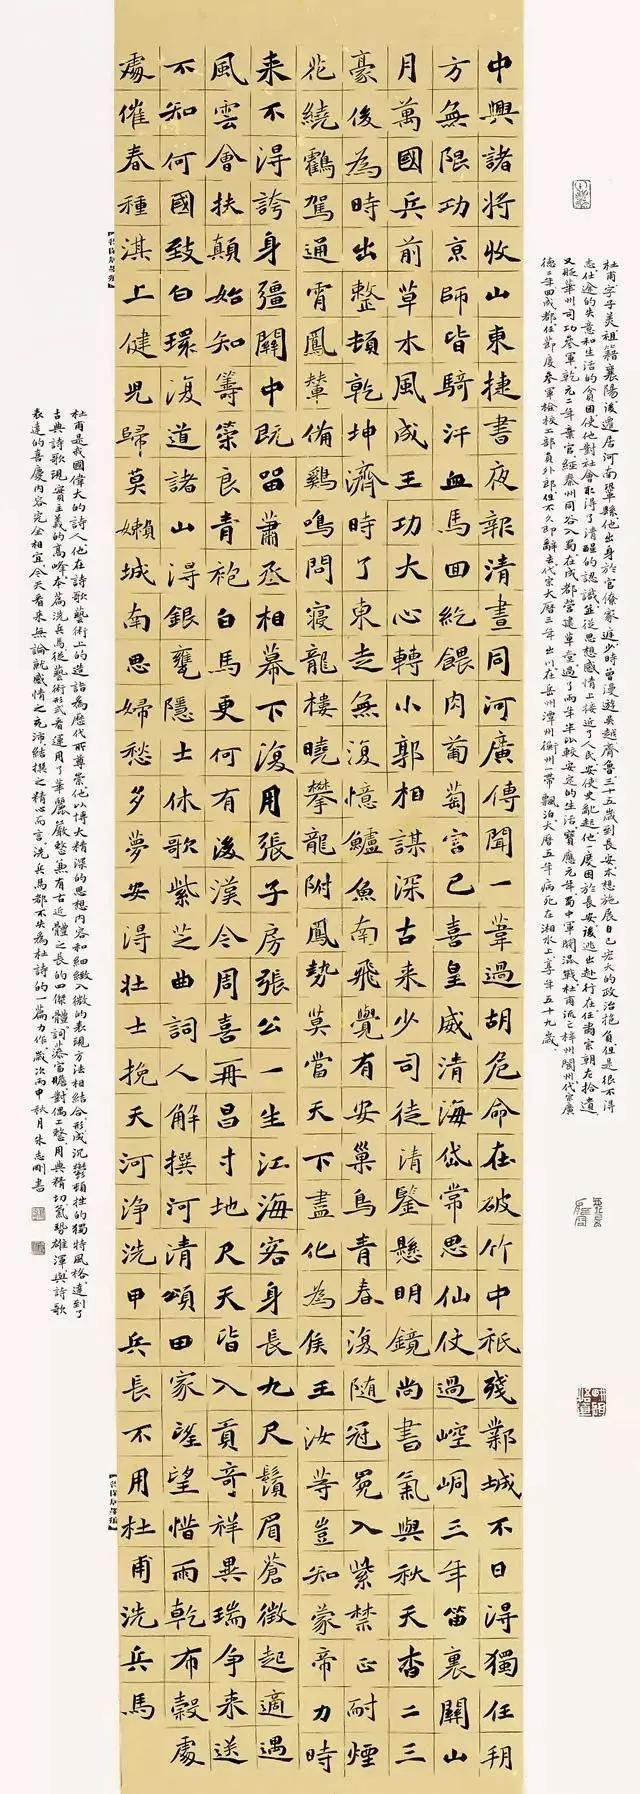 杜甫字子美祖籍襄陽後遷居河南鞏縣他出身於官僚家庭少時曾漫遊吳越齊魯三十五歲到長安本想施展自己宏大的政治抱負但是很不得
志仕途的失意和生活的貧困使他對社會取得了清醒的認識並從思想感情上接近了人民安使史亂起他一度困於長安後逃出赴行在任肅宗朝左拾遺
又貶華州司功參軍乾元二年棄官經秦州同谷入蜀在成都營建草堂過了兩年半比較安定的生活寶應元年蜀中軍閥混戰杜甫流亡梓州閬州代宗廣
德二年回成都任節度參軍檢校工部員外郎但不久即辭去代宗大曆三年出川在岳州潭州衡州一帶飄泊大曆五年病死在湘水上享年五十九歲
中興諸将收山東捷書夜報清晝同河廣傳聞一葦過胡危命在破竹中祇殘鄴城不日得獨任朔
方無限功京師皆騎汗血馬回紇餵肉葡萄宮已喜皇威清海岱常思仙仗過崆峒三年笛裏關山
月萬國兵前草木風成王功大心轉小郭相謀深古来少司徒清鑒懸明鏡尚書氣與秋天杳二三
豪後為時出整頓乾坤濟時了東走無復憶鱸魚南飛覺有安巢鳥青春復随冠冕入紫禁正耐煙
花繞鶴駕通霄鳳輦備鷄鳴問寢龍樓曉攀龍附鳳勢莫當天下盡化為侯王汝等豈知蒙帝力時
来不得誇身彊關中既留蕭丞相幕下復用張子房張公一生江海客身長九尺鬚眉蒼徵起適遇
風雲會扶顛始知籌策良青袍白馬更何有後漢今周喜再昌寸地尺天皆入貢奇祥異瑞争来送
不知何國致白環復道諸山得銀甕隱士休歌紫芝曲詞人解撰河清頌田家望望惜雨乾布穀處
處催春種淇上健兒歸莫嬾城南思婦愁多夢安得壯士挽天河浄洗甲兵長不用杜甫洗兵馬
杜甫是我國偉大的詩人他在詩歌藝術上的造詣為歷代所尊崇他以博大精深的思想内容和細緻入微的表現方法相結合形成沉鬱頓挫的獨特風格達到了
古典詩歌現實主義的高峰本篇洗兵馬從藝術形式看運用了華麗嚴整兼有古近體之長的四傑體詞藻富贍對偶工整用典精切氣勢雄渾與詩歌
表達的喜慶内容完全相宜今天看来無論就感情之充沛結撰之精心而言洗兵馬都不失為杜詩的一篇力作歲次丙申秋月朱志剛書